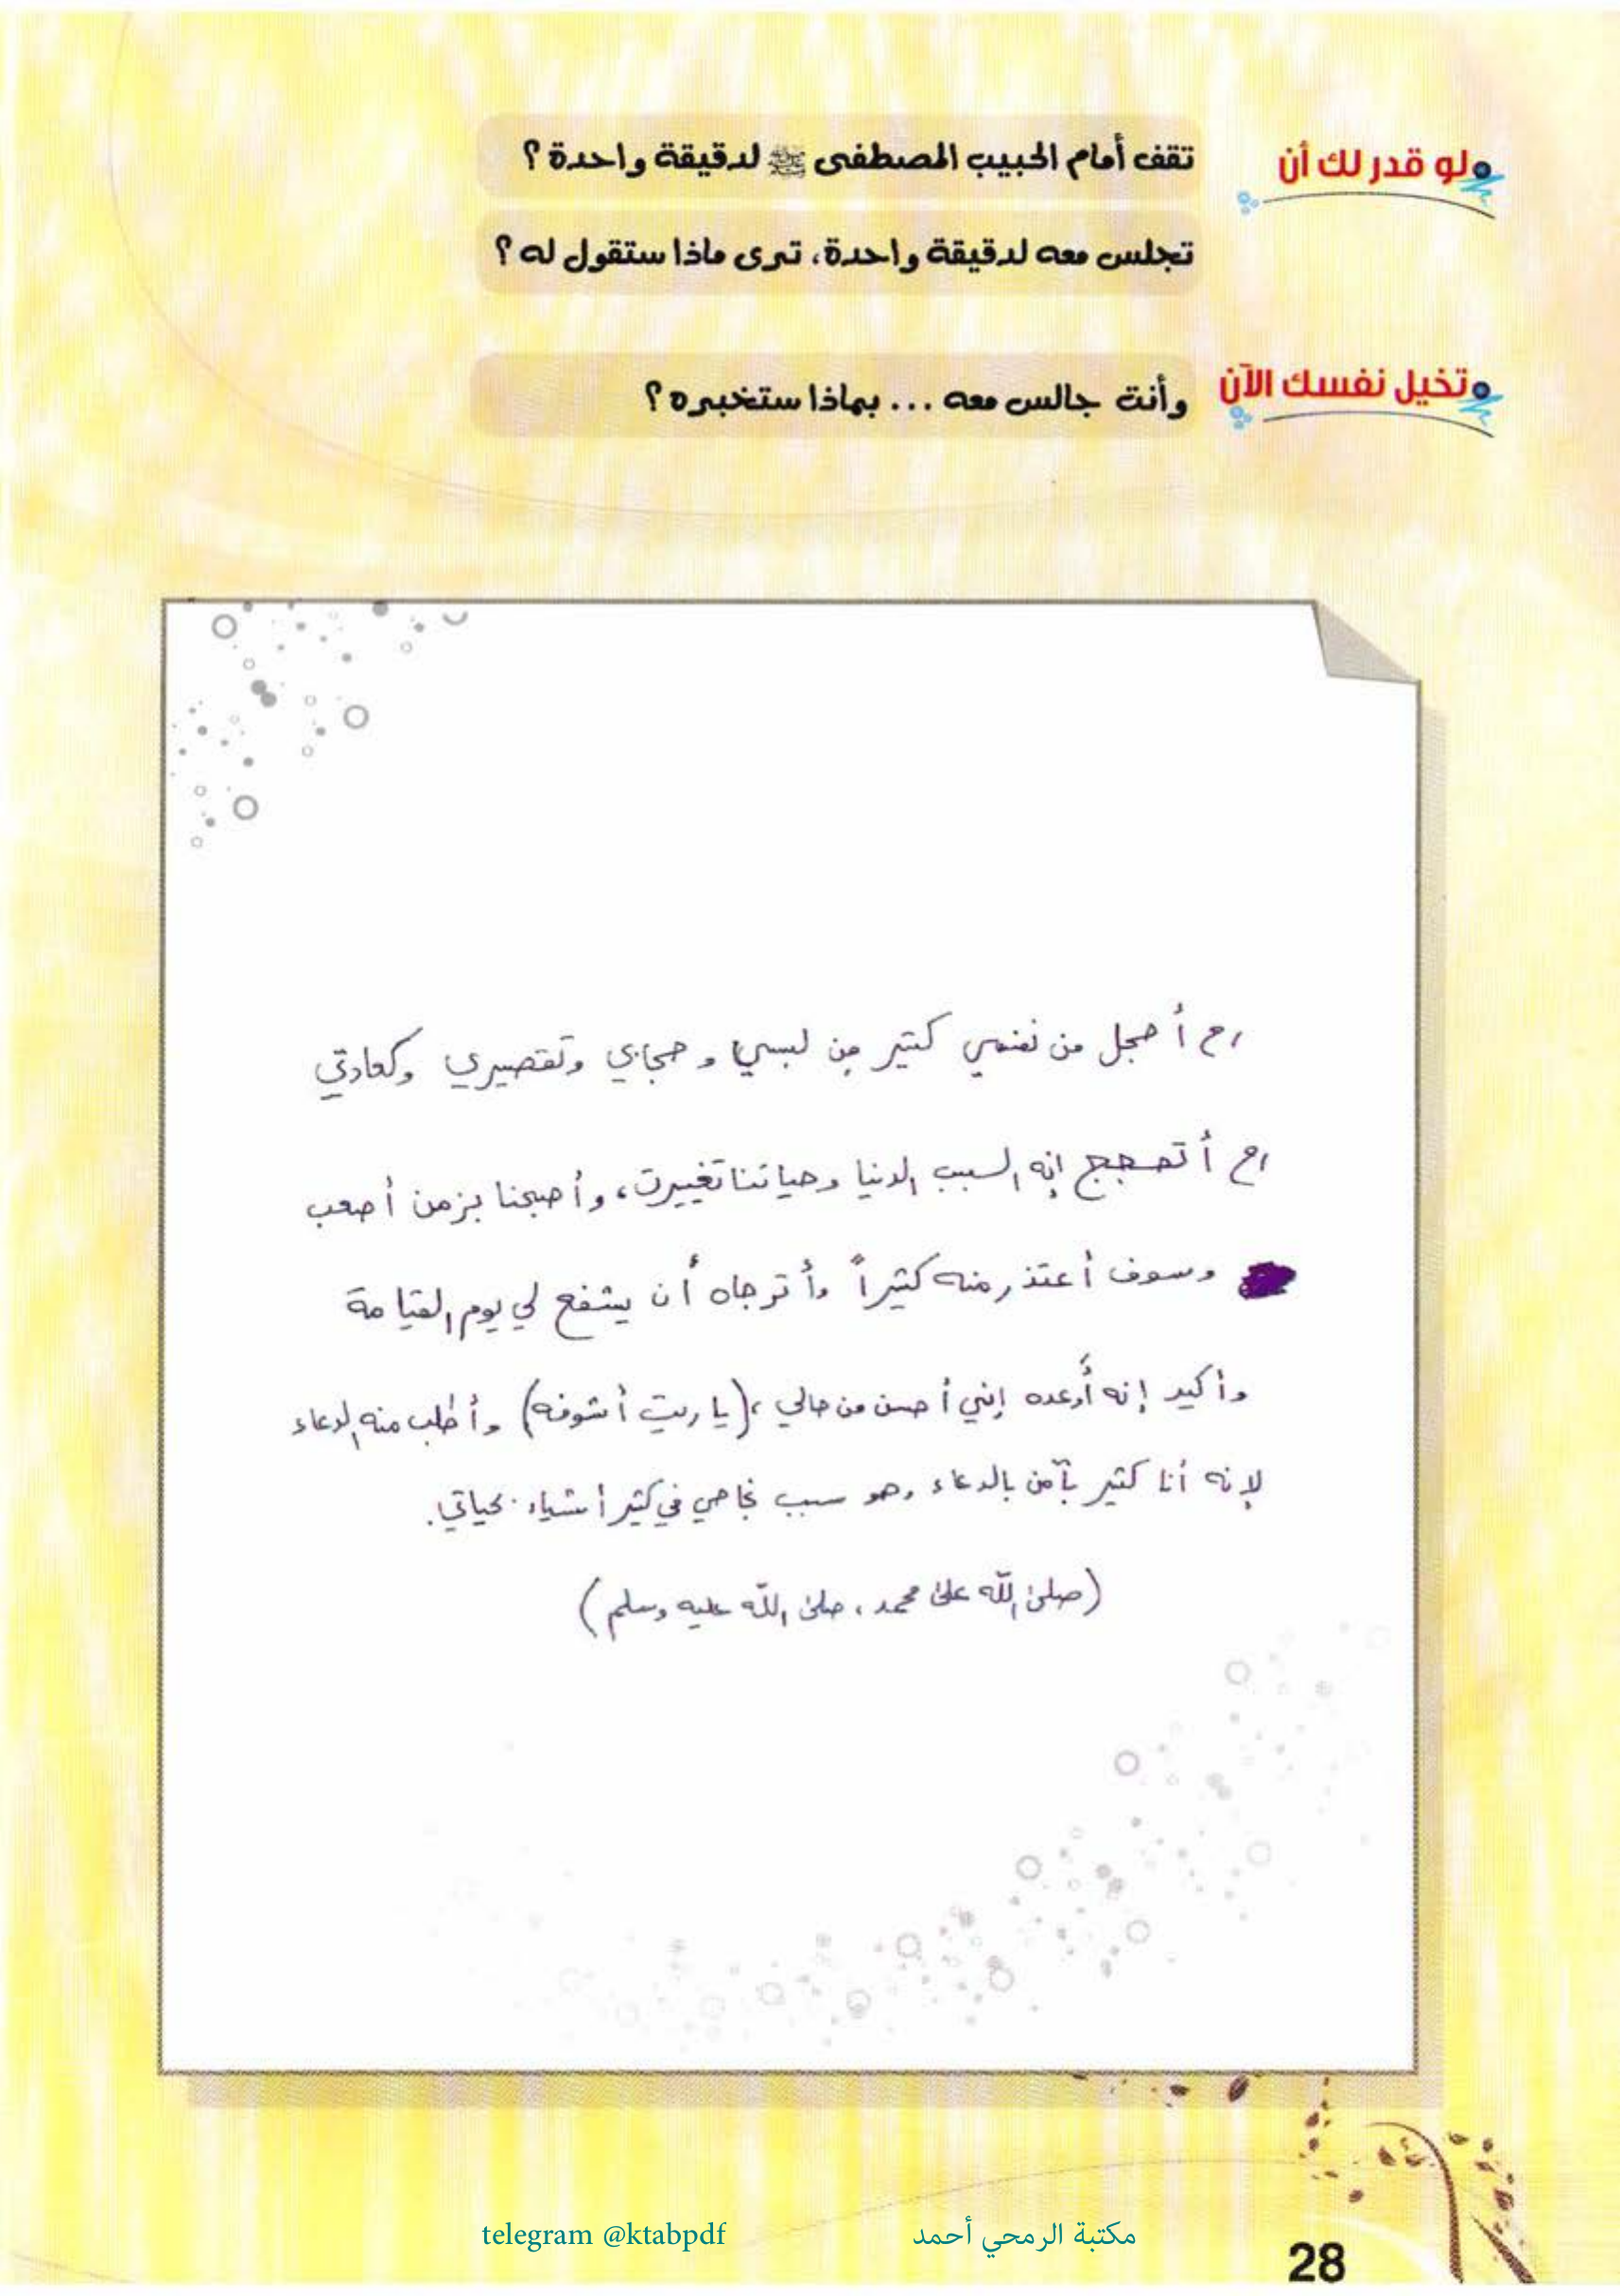 لو قدر لك أن
تقف أمام الحبيب المصطفى ﷺ لدقيقة واحدة ؟
تجلس معه لدقيقة واحدة، ترى ماذا ستقول له ؟
تخيل نفسك الآن
وأنت جالس معه ... بماذا ستخبره ؟
رح أخجل من نفسي كتير من لبسي وحجابي وتقصيري وكعادتي
رح أتحجج إنه السبب الدنيا وحياتنا تغييرت، وأصبحنا بزمن أصعب
وسوف أعتذر منه كثيراً وأترجاه أن يشفع لي يوم القيامة
وأكيد إنه أوعده إنني أحسن من حالي، (يا ريت أشوفه) وأطلب منه الدعاء
لإنه أنا كتير بآمن بالدعاء وهو سبب نجاحي في كتير أشياء بحياتي.
(صلى الله على محمد، صلى الله عليه وسلم)
telegram @ktabpdf
مكتبة الرمحي أحمد
28